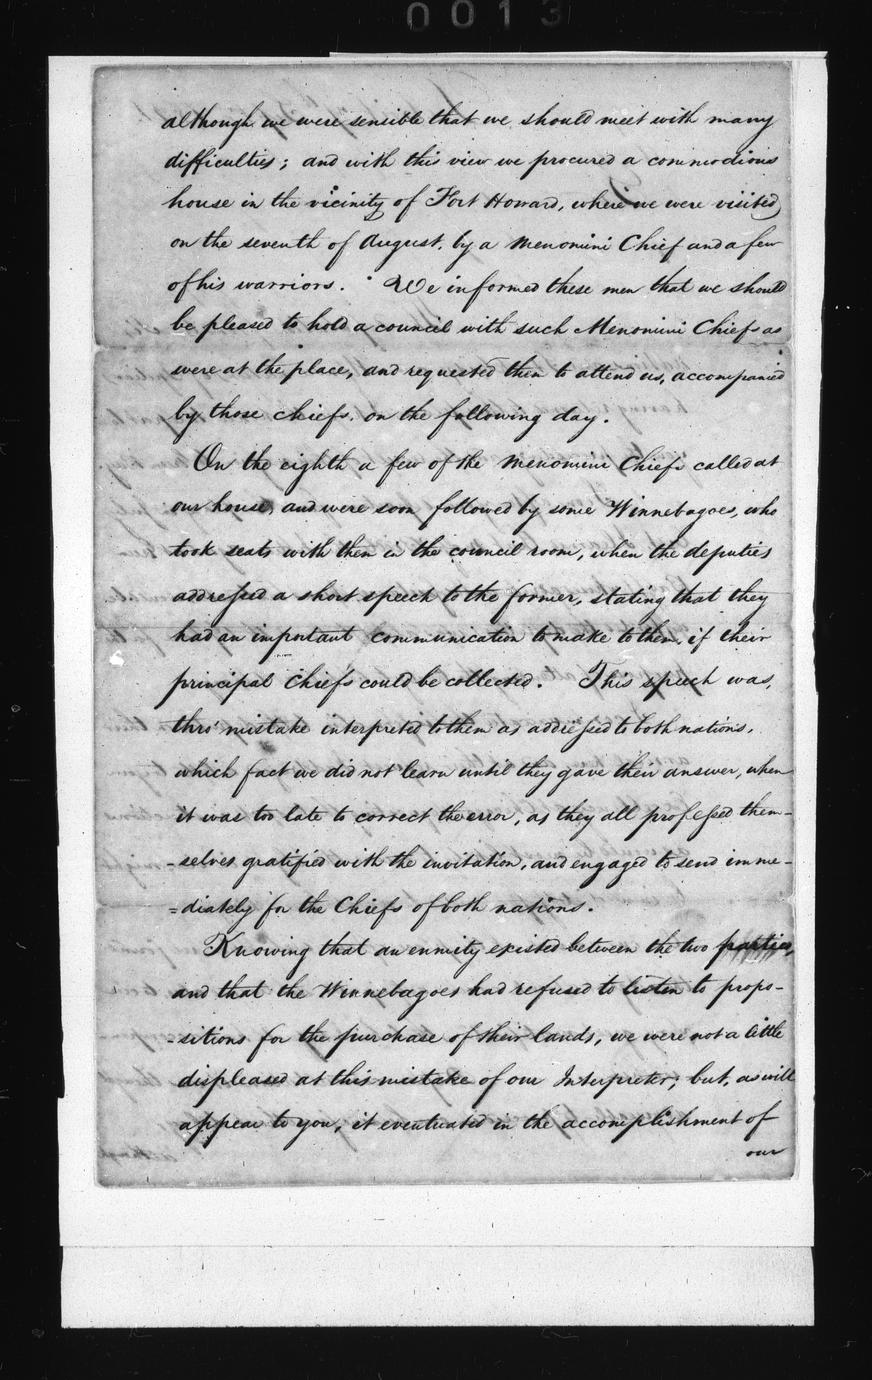 0013
although we were sensible that we should meet with many
difficulties; and with this view we procured a commodious
house in the vicinity of Fort Howard, where we were visited
on the seventh of August, by a Menomini Chief and a few
of his warriors. We informed these men that we should
be pleased to hold a council with such Menomini Chiefs as
were at the place, and requested them to attend us, accompanied
by those chiefs, on the following day.
On the eighth a few of the Menomini Chiefs called at
our house, and were soon followed by some Winnebagoes, who
took seats with them in the council room, when the deputies
addressed a short speech to the former, stating that they
had an important communication to make to them, if their
principal Chiefs could be collected. This speech was,
thro' mistake interpreted to them as addressed to both nations,
which fact we did not learn until they gave their answer, when
it was too late to correct the error, as they all professed them-
-selves gratified with the invitation, and engaged to send imme-
=diately for the Chiefs of both nations.
Knowing that an enmity existed between the two parties,
and that the Winnebagoes had refused to listen to propo-
-sitions for the purchase of their lands, we were not a little
displeased at this mistake of our Interpreter; but, as will
appear to you, it eventuated in the accomplishment of
our